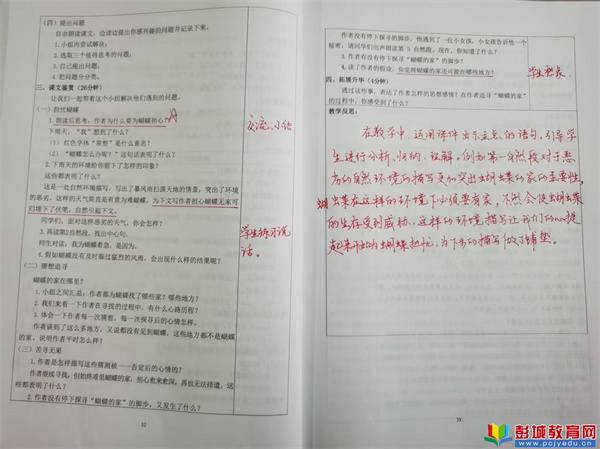 (四)提出问题
自由朗读课文,边读边提出你感兴趣的问题并记录下来。
1.小组内尝试解决;
2.选取三个值得思考的问题;
3.自己提出问题;
4.把问题分分类。
三、课文鉴赏(26分钟)
让我们一起带着这个小组解决他们遇到的问题。
(一)担忧蝴蝶
1.朗读后思考:作者为什么要为蝴蝶担心?
下雨天,“我”想到了什么?
(1)红色字体“常想”是什么意思?
(2)“蝴蝶怎么办呢?”这句话表明了什么?
2.下雨天的环境给你留下了怎样的印象?
这些都表明了什么?
这是一处自然环境描写,写出了暴风雨扫荡天地的情景,突出了环境
的恶劣,这样的天气简直是有意为难蝴蝶,为下文写作者担心蝴蝶无家可
归埋下了伏笔,自然引起下文。
同学们,面对这样恶劣的天气,你会怎样?
3.再读第2自然段,找出中心句。
师生对话:我为蝴蝶着急,是因为。
4.假如蝴蝶没有及时躲过猛烈的风雨,会出现什么样的结果呢?
(二)猜想追寻
蝴蝶的家在哪里?
1.小组之间汇总:作者都为蝴蝶找了哪些家?哪些地方?
2.我们来看一下作者在寻找的过程中,有什么心路历程?
3.体会一下作者每一次猜想,每一次探寻后的心情怎样。
作者谈到了这么多地方,又说都没有见到蝴蝶,这些地方都不是蝴蝶
的家,说明作者平时怎么样?
(三)苦寻无果
1.作者是怎样描写这些猜测被一一否定后的心情的?
作者继续寻找,但始终难觅蝴蝶的家,担心愈来愈深,再也无法排遣,这
些都表明了什么?
2.作者没有停下探寻“蝴蝶的家”的脚步,又发生了什么?
交流、小结
学生练习说
话。
52
作者没有停下探寻的脚步,他遇到了一位小女孩,小女孩告诉他一个
秘密,请同学们出声朗读第5自然段。现在,你知道了什么?
3.作者有没有停下探寻“蝴蝶的家”的脚步?
4.读了作者的假设,你觉得蝴蝶的家还可能在哪些地方?
学生想象
四、拓展升华(4分钟)
通过这些事,表达了作者怎样的思想感情?在作者追寻“蝴蝶的家”
的过程中,你感受到了什么?
教学反思:
在教学中,运用课件出示重点的语句,引导学
生进行分析、归纳、理解。例如第一自然段对于恶
劣的自然环境的描写更加突出蝴蝶的家的重要性,
蝴蝶在这样的环境下必须要有家,不然会使蝴蝶
的生存受到威胁,这样的环境描写让我们
起来开始为蝴蝶担忧,为下文的描写做了铺垫。
53
彭城教育网
www.pcjyedu.cn